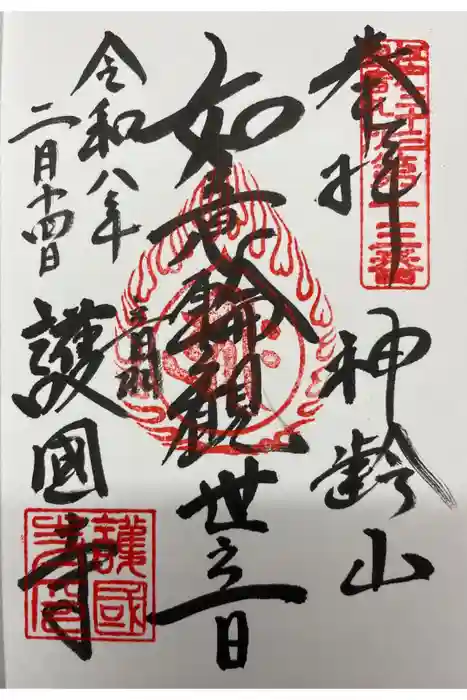 奉拝
神齢山
如意輪觀世音
音羽
令和八年
二月十四日
護國寺
護國
寺印